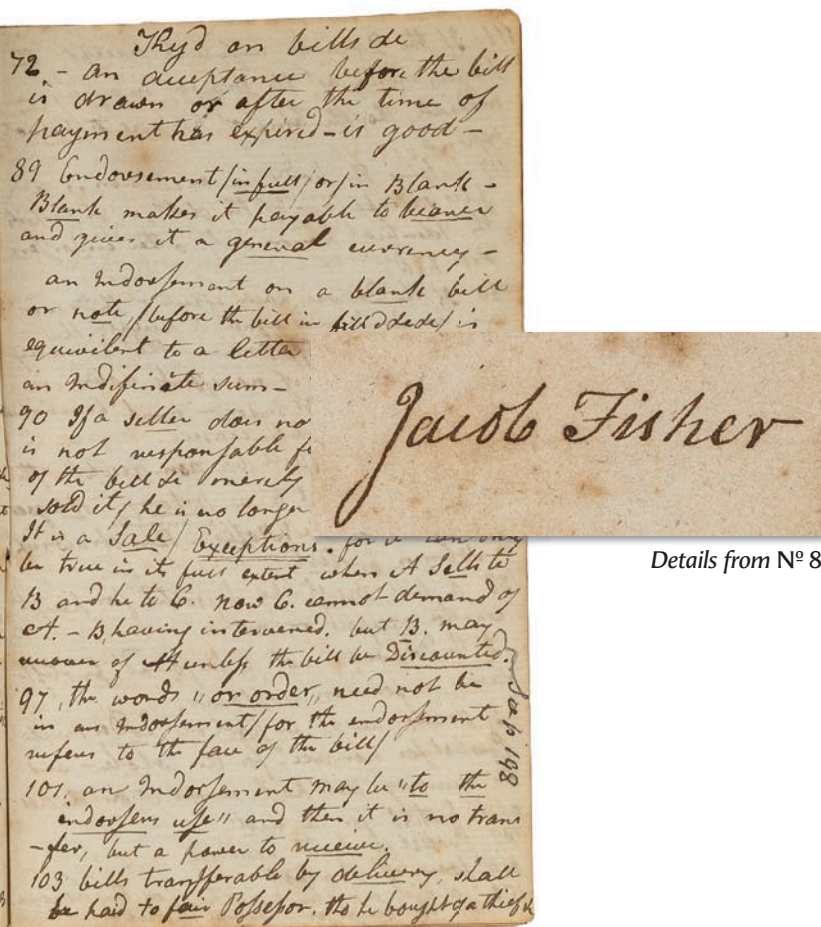 Kyd on bills &c
72 - an acceptance before the bill
is drawn or after the time of
payment has expired - is good -
89 Endorsement / in full / or / in Blank -
Blank makes it payable to bearer
and gives it a general currency -
an Indorsement on a blank bill
or note, / before the bill in filld &c &c / is
equivilent to a letter
an indifinite sum -
90 If a seller does no
is not responsable f
of the bill &c merely
sold it / he is no longer
It is a Sale / Exceptions. for it can only
be true in its full extent when A Sells to
B and he to C. now C. cannot demand of
A. - B, having intervened. but B. may
recover of A unless the bill be Discounted.
97, the words "or order," need not be
in an Indorsement / for the endorsment
refers to the face of the bill /
101, an Indorsement may be "to the
endorsers use" and then it is no trans
-fer, but a power to receive.
103 bills transferable by delivery, shall
be paid to fair Possessor. tho he bought of a thief
Jacob Fisher
Details from Nº 8